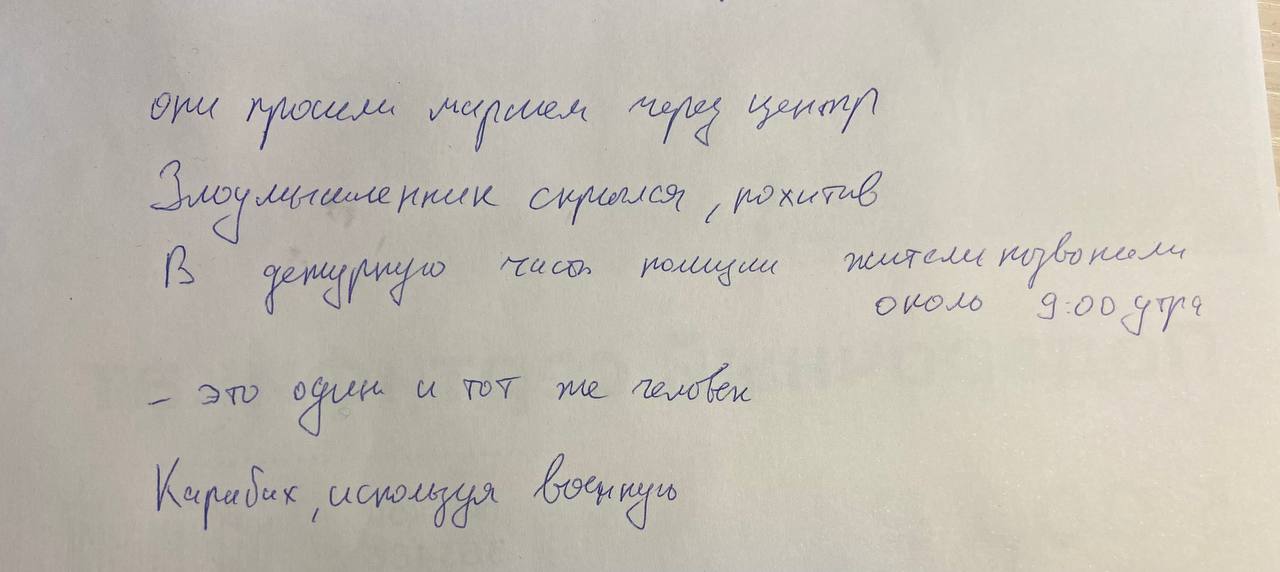 они прошли маршем через центр
Злоумышленник скрылся, похитив
В дежурную часть полиции жители позвонили
около 9:00 утра
– это один и тот же человек
Карибах, используя военную